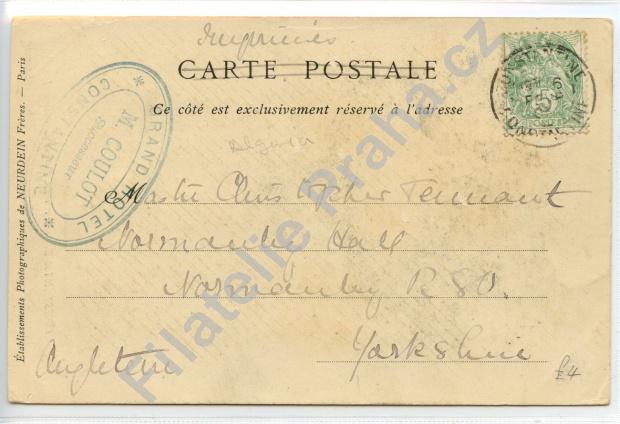 Imprimés
CARTE POSTALE
Ce côté est exclusivement réservé à l'adresse
Algeria
GRAND HOTEL
M. COULOT
Successeur
CONSTANTINE
CONSTANTINE
CONSTANTINE
5
POSTES
Master Christopher Tennant
Normanby Hall
Normanby R.S.O.
Yorkshire
Angleterre
£4
Établissements Photographiques de NEURDEIN Frères. — Paris
Filatelie Praha.cz